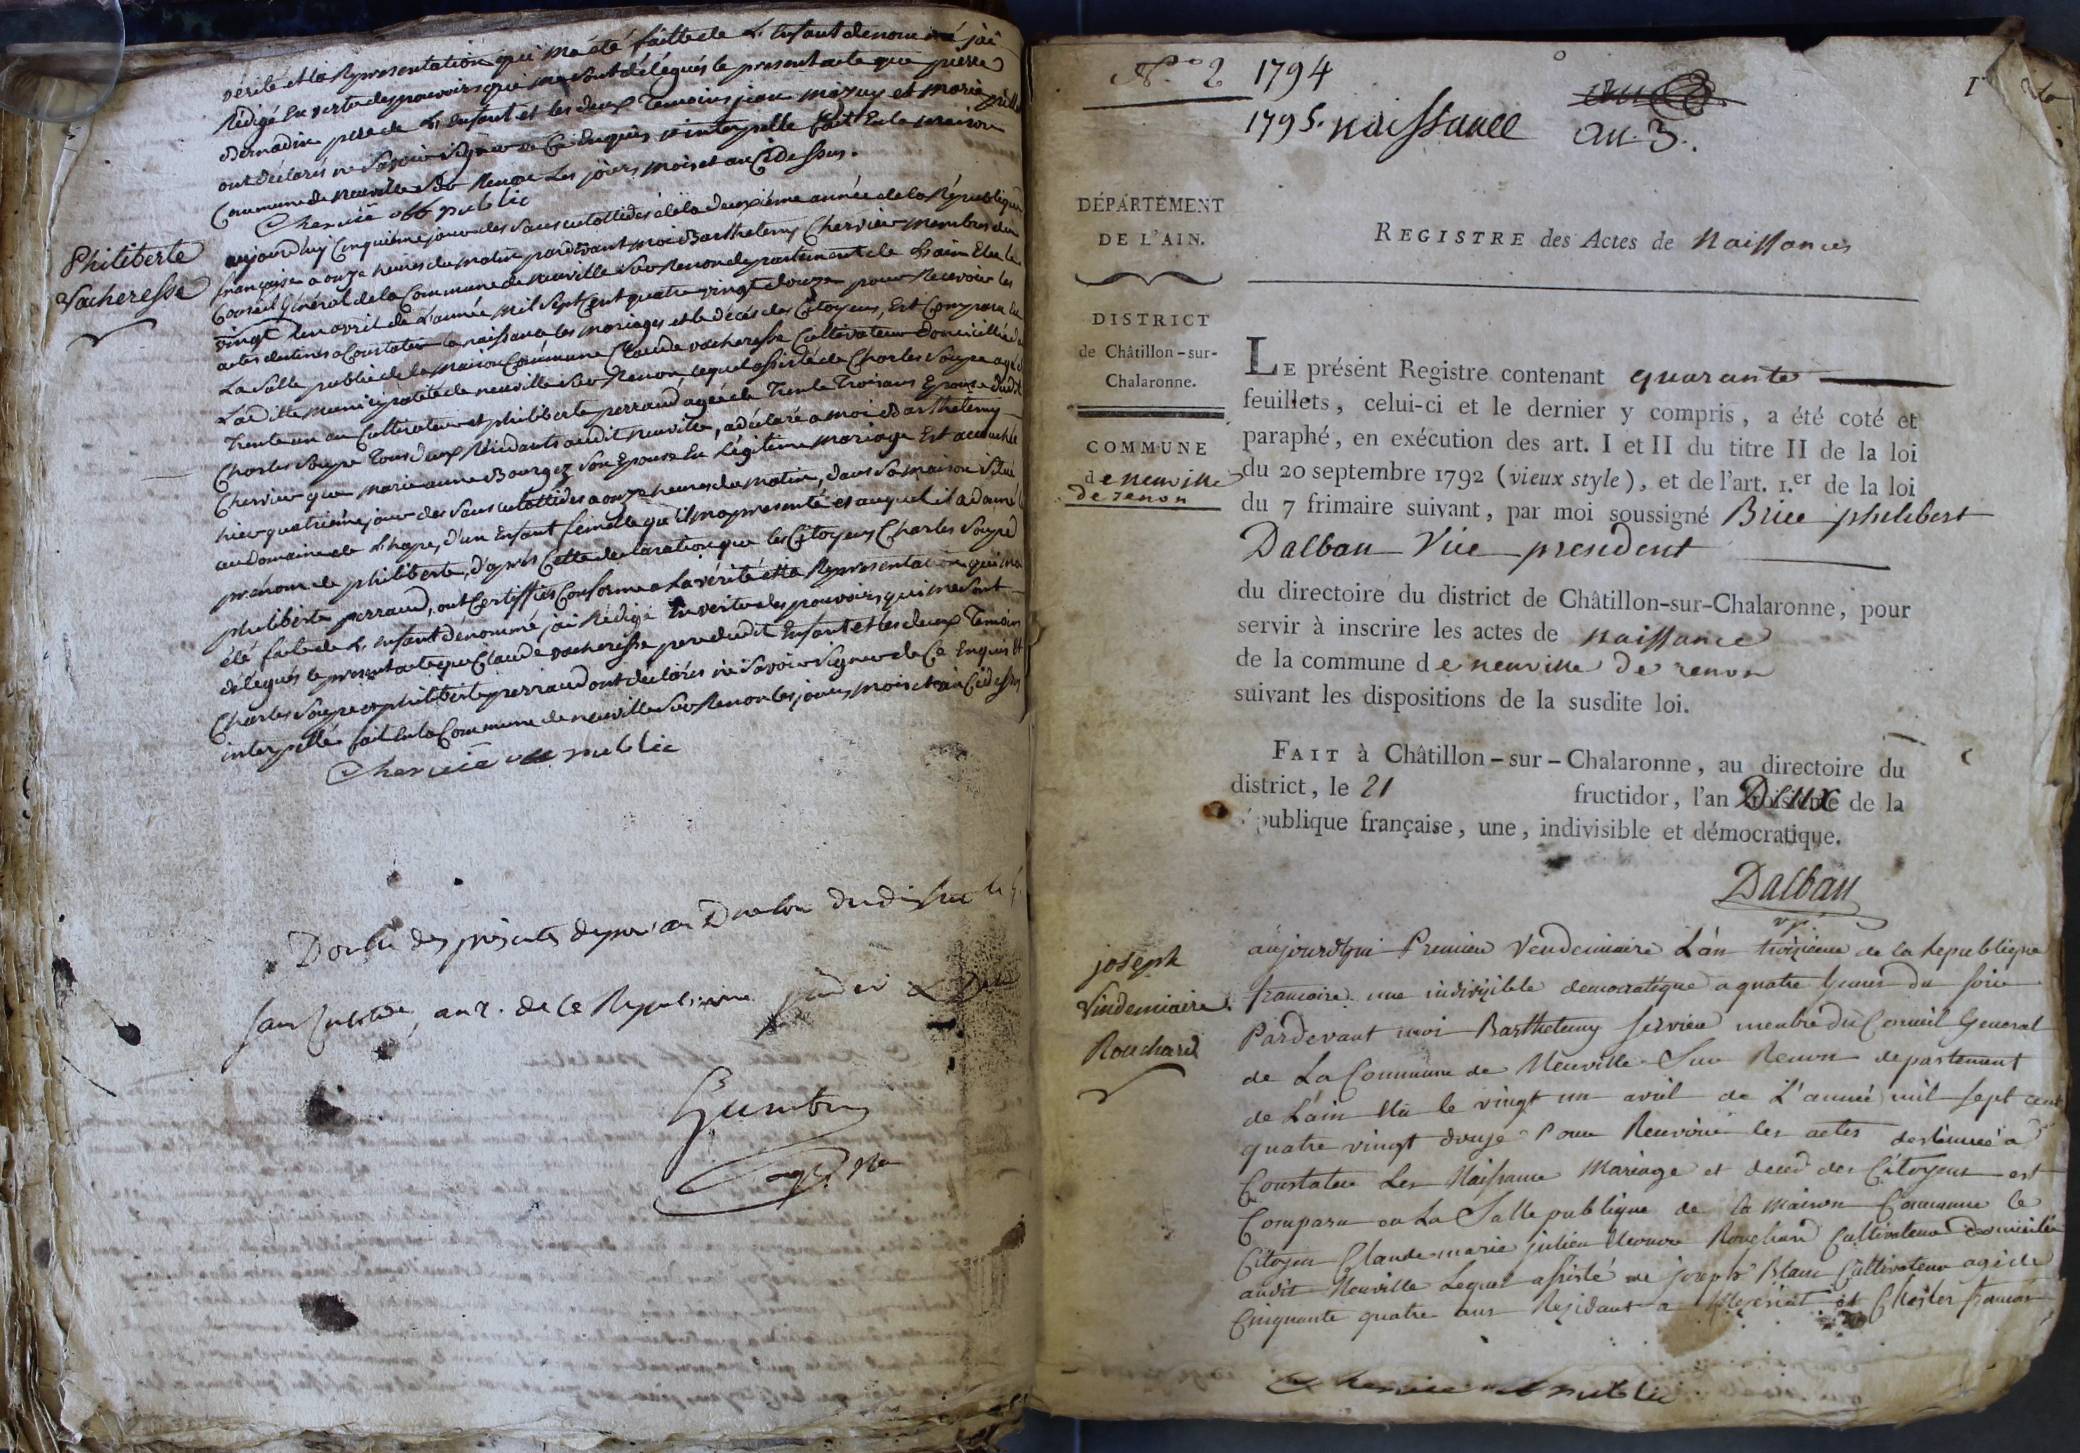 vérité et la Representation qui ma été faitte de L'Enfant denommé jai
Rédigé En vertu des pouvoirs qui me sont délégués le present acte que pierre
Bernadin pere de L'enfant et les deux Temoins jean mazuy et marie
ont déclarés ne Savoir Signer de Ce Enquis et interpellé fait En la maison
Commune de neuville Sur Renon Les jours mois et an Cy Dessus.
Chervié off public
Philiberte
Vacheresse
aujourdhuy Cinquième jour des Sansculottides de la deuxième année de la République
française a onze heures du matin pardevant moi Barthelemy Chervier membre du
Conseil Général de la Commune de neuville Sur Renon departement de L'ain Elu le
vingt un avril de L'année mil Sept Cent quatre vingt douze pour Recevoir les
actes destinés a Constater la naissance les mariages et le décès des Citoyens, Est Comparu En
La Salle public de la maison Commune Claude vacheresse Cultivateur domicillié
Laditte municipalité de neuville Sur Renon, lequel assisté de Charles Soupe agé d
Trente un an Cultivateur et philiberte perraud agée de Trente Trois ans Epouse dudit
Charles Soupe Tous deux Résidants audit neuville, a déclaré a moi Barthelemy
Chervier que marie anne Bourgez Son Epouse En Légitime mariage Est accouchée
hier quatrième jour des Sansculottides a onze heures du matin, dans Sa maison Situé
au domaine de L'hope, d'un Enfant femelle qu'il m'a presenté et auquel il a donné le
prénom de philiberte, d'après Cette declaration que les Citoyens Charles Soupe
philiberte perraud, ont Certiffiés Conforme a La vérité et la Representation qui ma
été faite de L'enfant dénommé, jai Rédigé En vertu des pouvoirs qui me sont
délegués le present acte que Claude vacheresse pere dudit Enfant et les deux Temoins
Charles Soupe et philiberte perraud ont declarés ne Savoir Signer de Ce Enquis Et
interpellé fait En la Commune de neuville Sur Renon les jours mois et an Ci dessus
Chervié off public
Double des presentes deposé au District le
Sansculotide, an 2. de la Republique
N.º 2 1794
1795. naissance an 3.
DÉPARTEMENT
DE L'AIN.
DISTRICT
de Châtillon-sur-
Chalaronne.
COMMUNE
de neuville
de renon
REGISTRE des Actes de Naissances
LE présent Registre contenant quarante
feuillets, celui-ci et le dernier y compris, a été coté et
paraphé, en exécution des art. I et II du titre II de la loi
du 20 septembre 1792 (vieux style), et de l'art. 1.er de la loi
du 7 frimaire suivant, par moi soussigné Brice philibert
Dalban Vice president
du directoire du district de Châtillon-sur-Chalaronne, pour
servir à inscrire les actes de naissance
de la commune de neuville de renon
suivant les dispositions de la susdite loi.
FAIT à Châtillon-sur-Chalaronne, au directoire du
district, le 21 fructidor, l'an Deux de la
république française, une, indivisible et démocratique.
Dalban
vp.
joseph
Vindemiaire
Rouchard
aujourd'hui Premier Vendemiaire L'an troizieme de la Republique
francoise une indivizible democratique a quatre heures du soir
Pardevant moi Barthelemy Servieu membre du Conseil General
de La Commune de Neuville Sur Renon departement
de L'ain Elu le vingt un avril de L'année mil sept cent
quatre vingt douze Pour Recevoir les actes destinées a
Constater Les Naissance Mariage et deces des Citoyens est
Comparu en La Salle publique de la Maison Commune le
Citoyen Claude marie julien Rouchard Cultivateur domicilié
audit Neuville Lequel assisté de joseph Blanc Cultivateur agé de
Cinquante quatre ans Residant a et Charles francois
Chervié off public